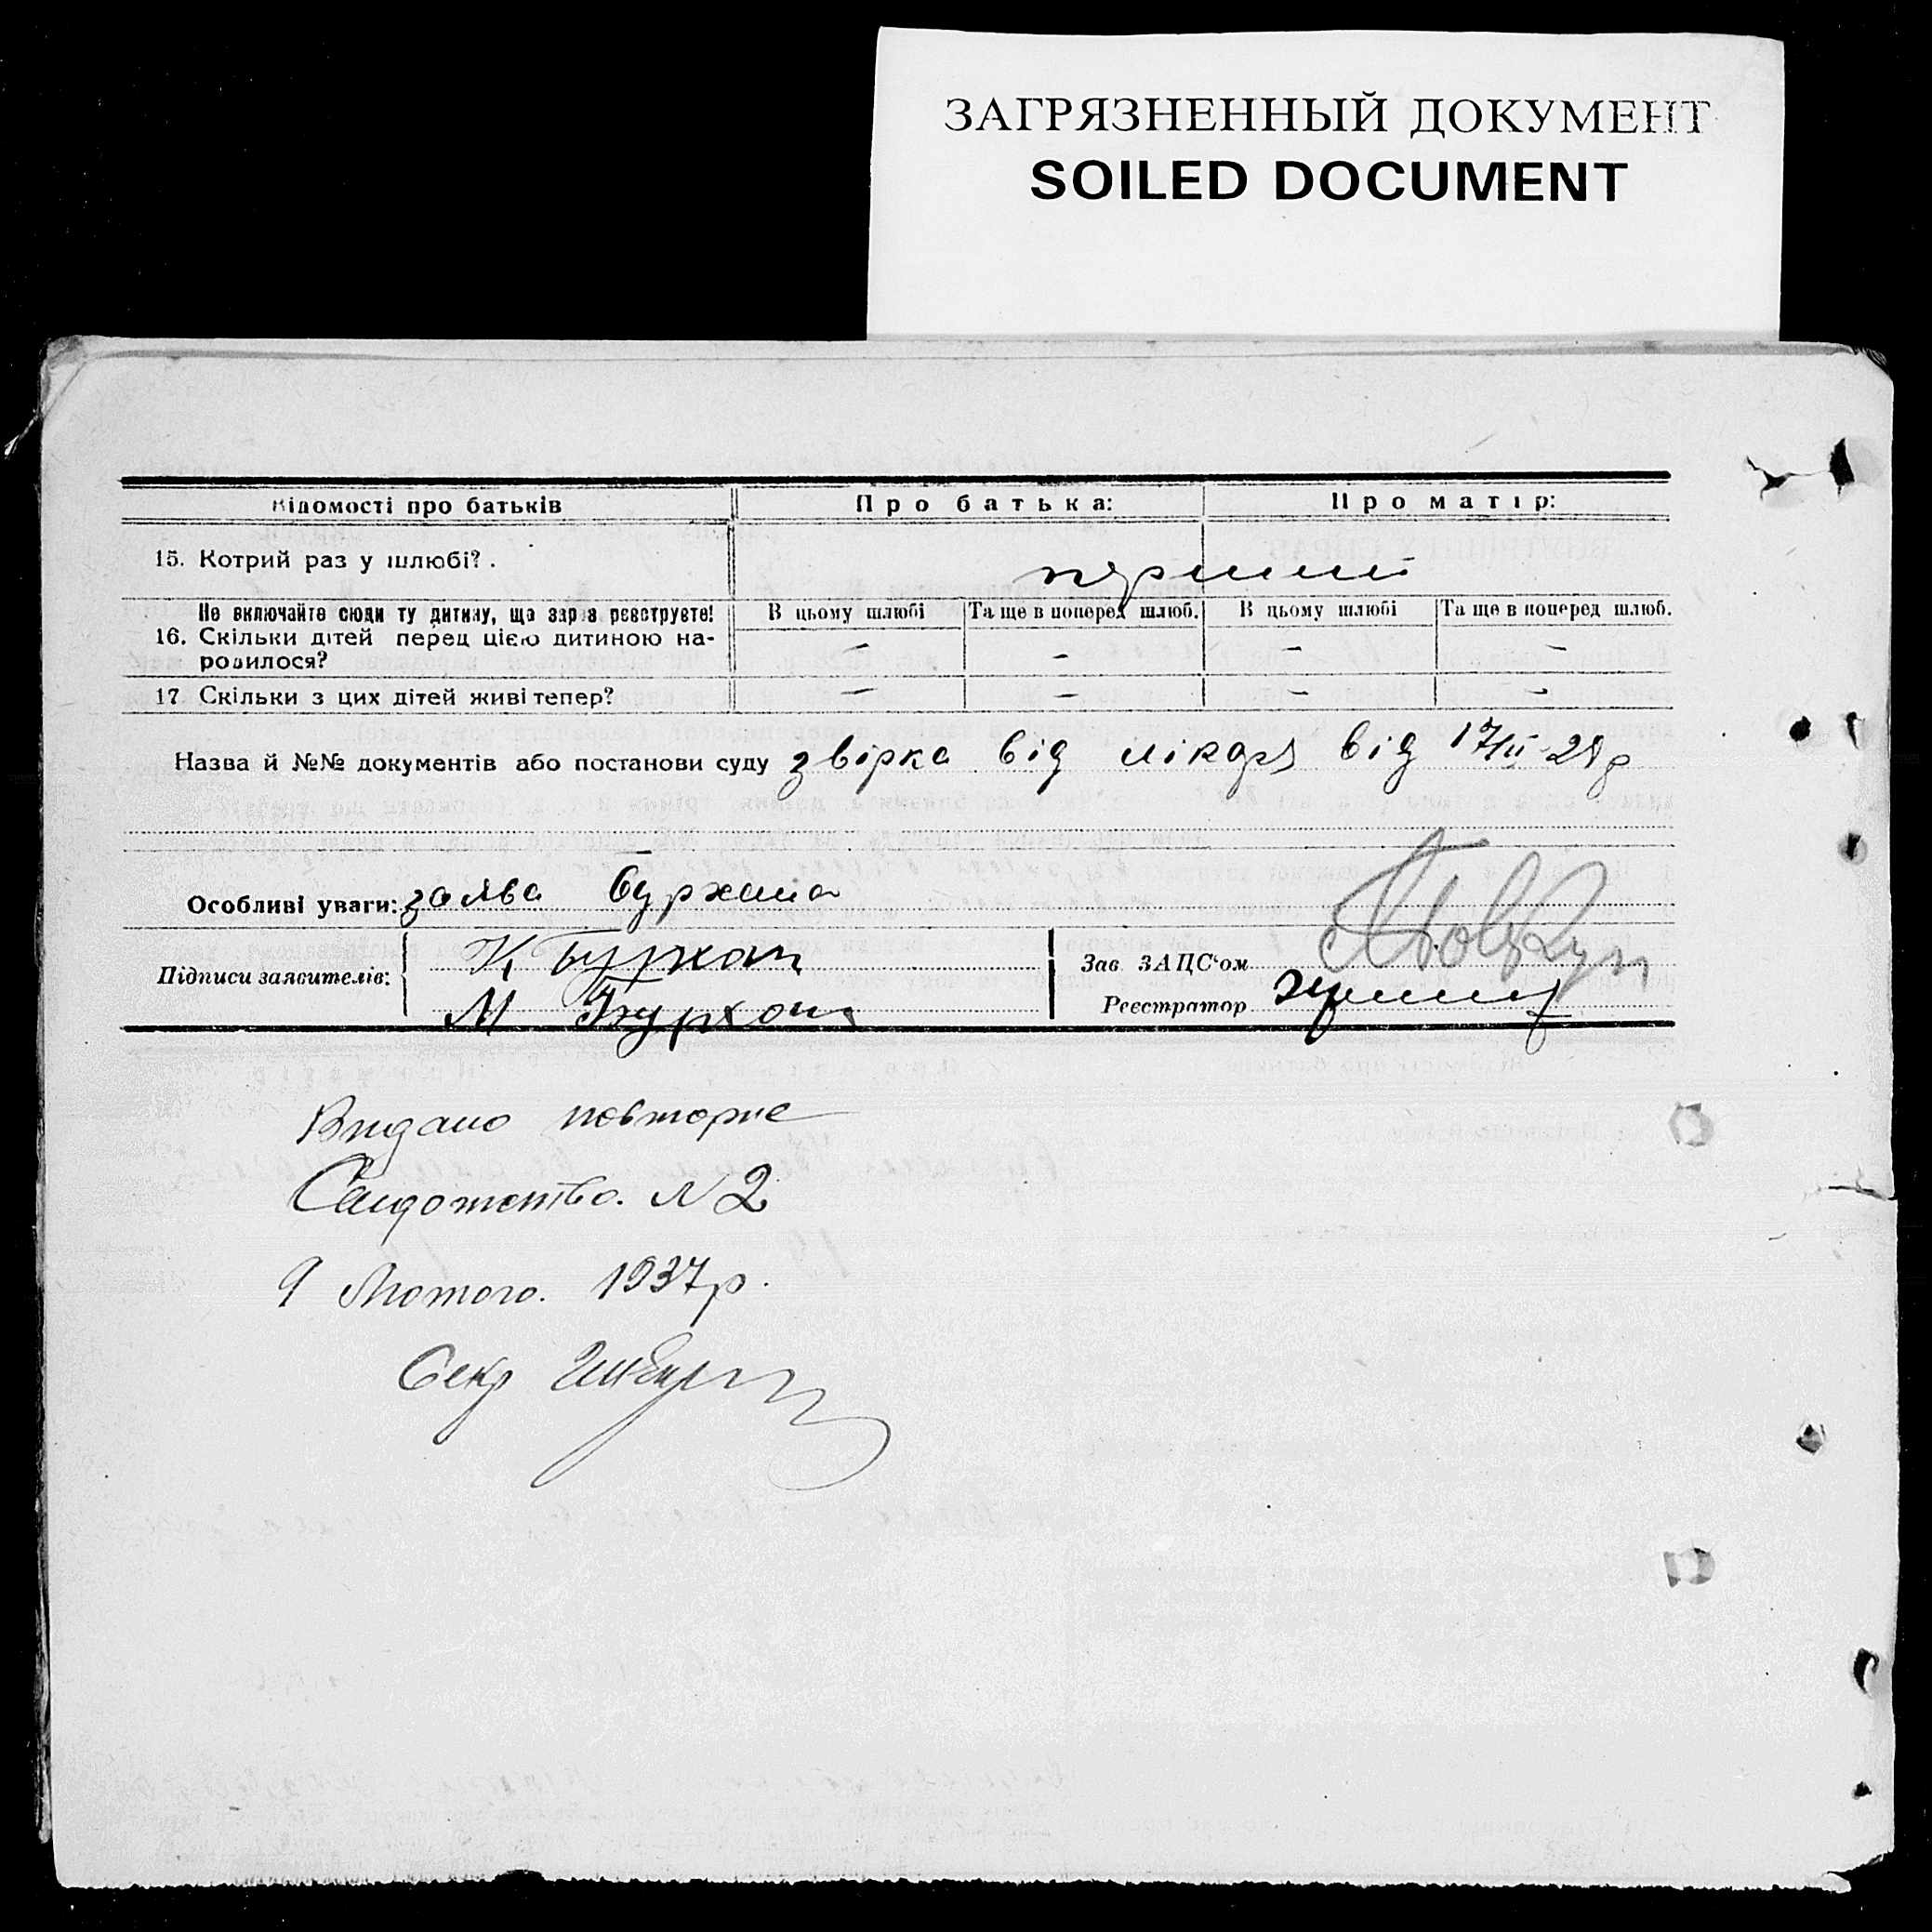 ЗАГРЯЗНЕННЫЙ ДОКУМЕНТ
SOILED DOCUMENT
Відомості про батьків Про батька: Про матір:
15. Котрий раз у шлюбі?. перший
Не включайте сюди ту дитину, що зараз реєструєте! В цьому шлюбі Та ще в поперед шлюб. В цьому шлюбі Та ще в поперед шлюб.
16. Скільки дітей перед цією дитиною на-
родилося? — — — —
17. Скільки з цих дітей живі тепер? — — — —
Назва й №№ документів або постанови суду від лікаря від
Особливі уваги: заява Бурхана
Підписи заявителів: К Бурхан Зав ЗАЦС'ом
М Бурхан Реєстратор
Видано повторне
Свідотство. N 2
9 Лютого. 1937р.
Секр